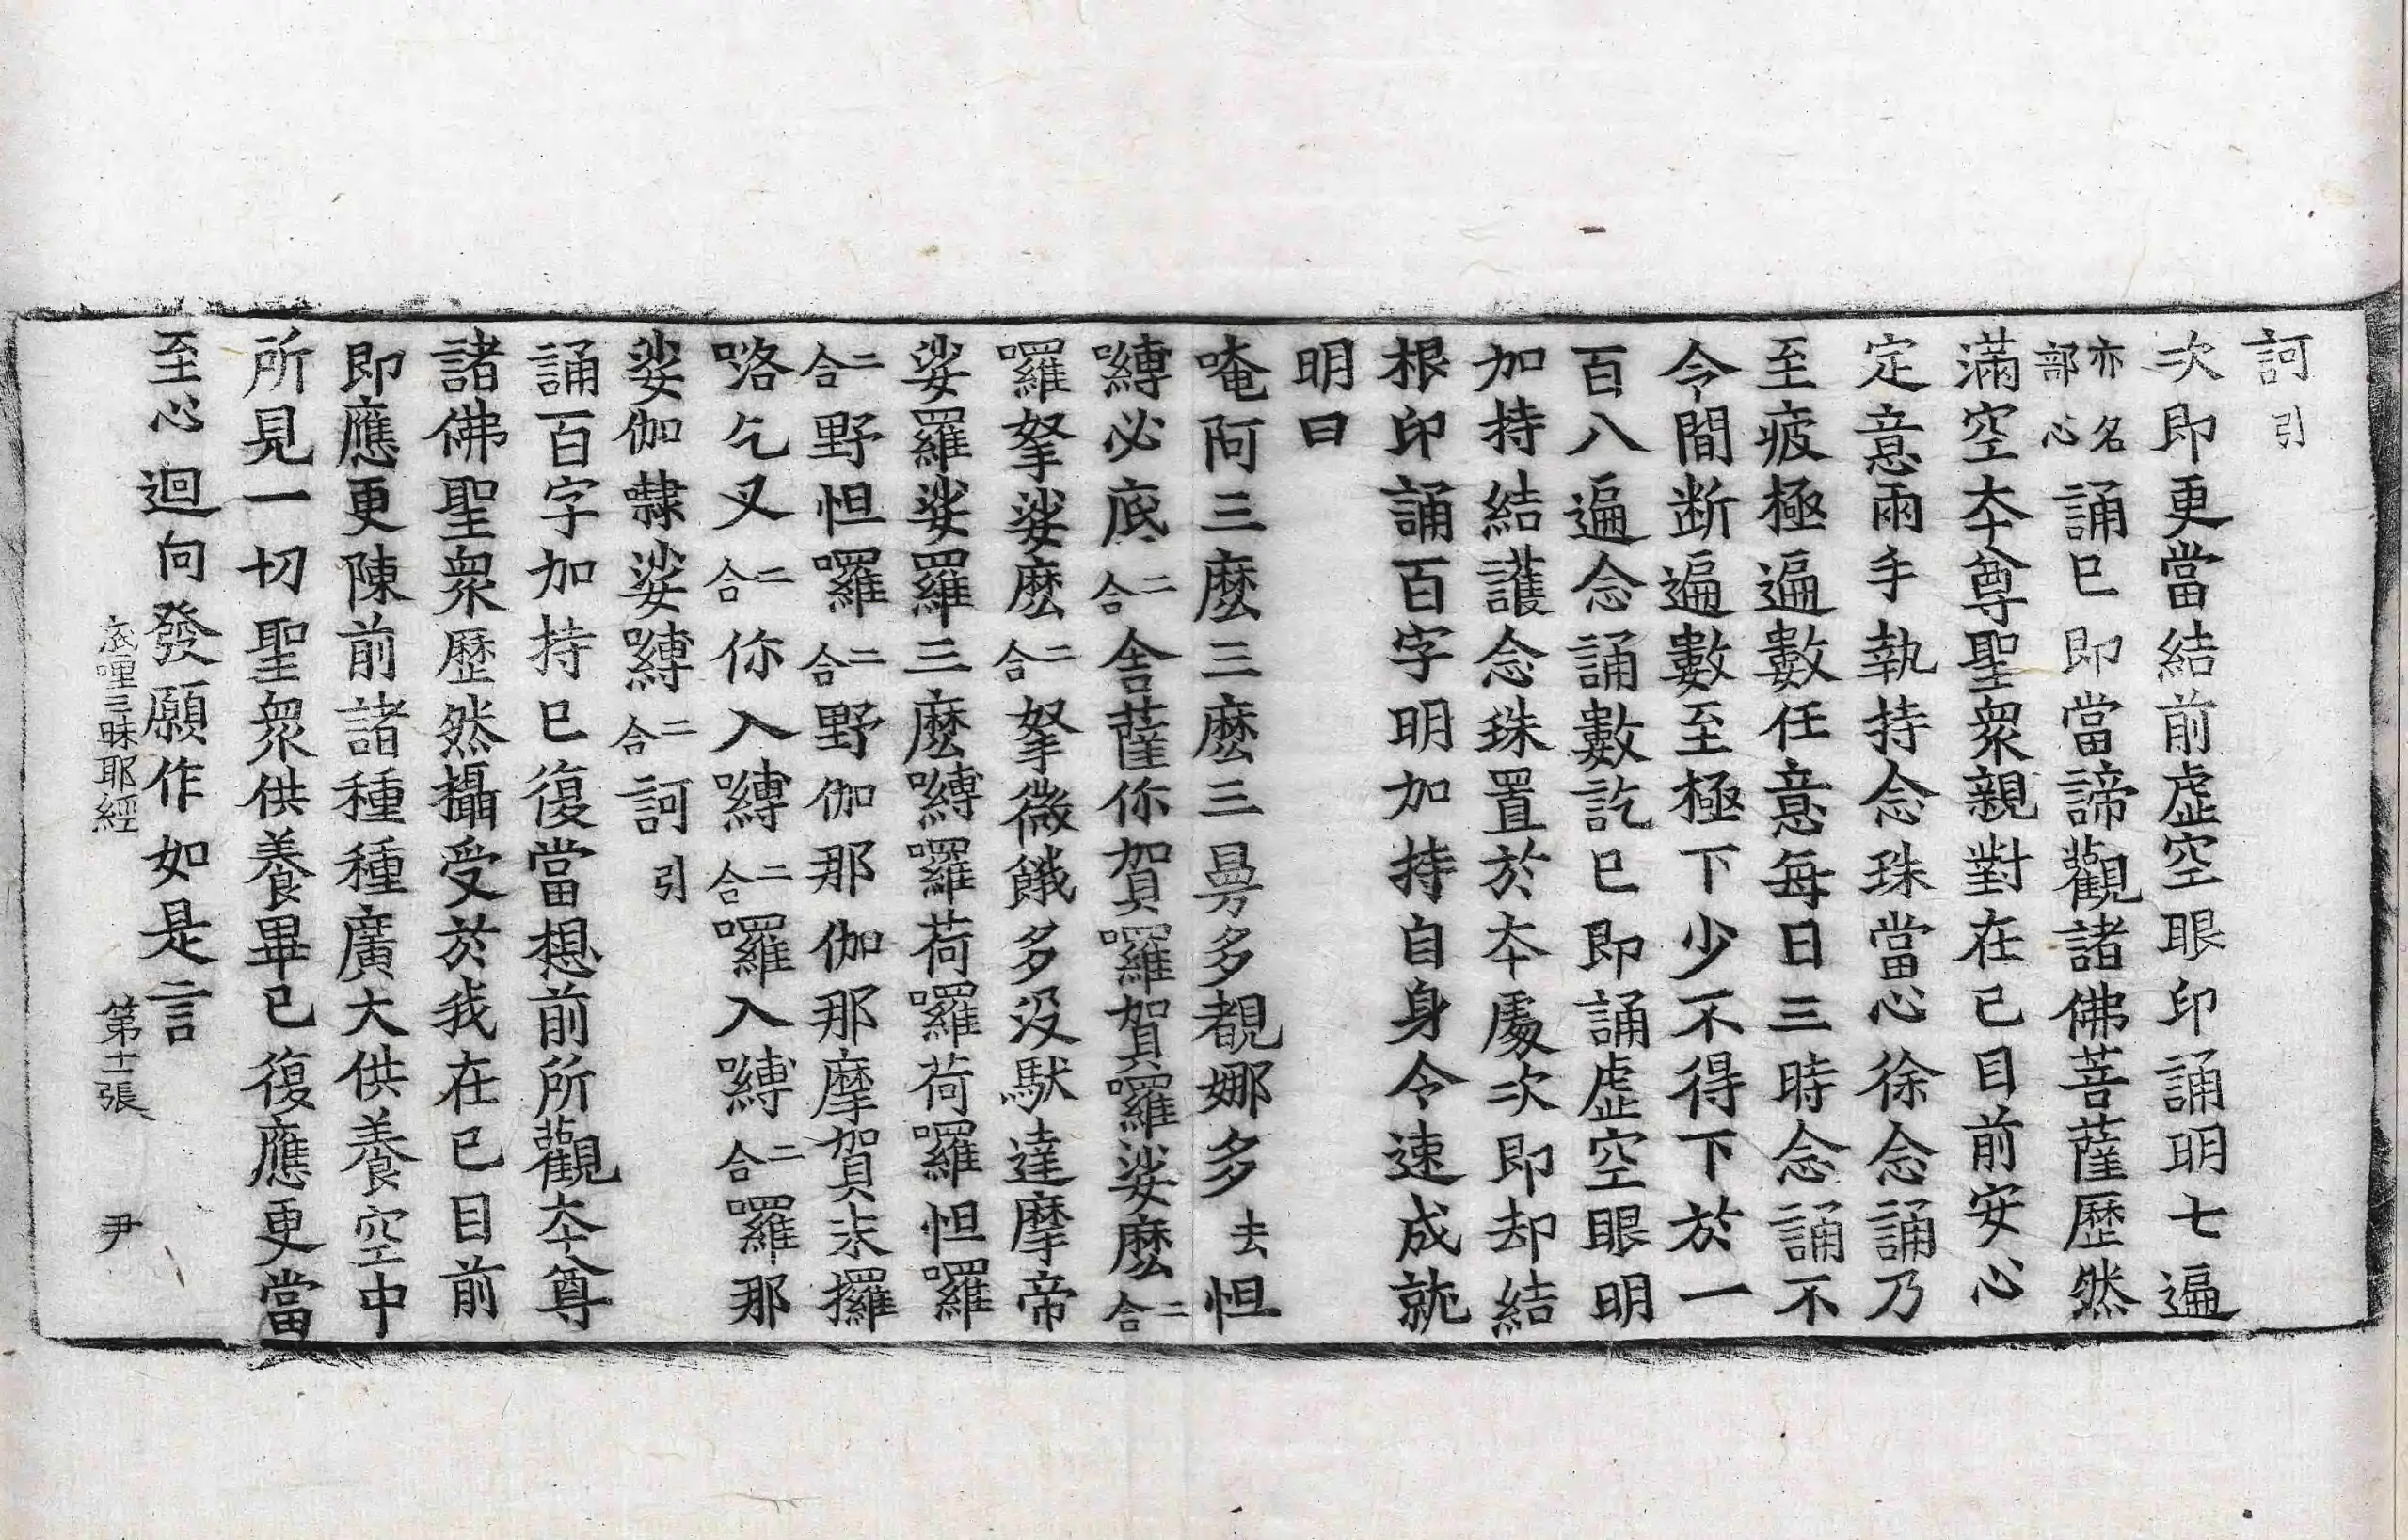 訶引
次即更當結前虛空眼印誦明七遍
亦名部心誦已即當諦觀諸佛菩薩歷然
滿空夲尊聖衆親對在已目前安心
定意兩手執持念珠當心徐念誦乃
至疲極遍數任意每日三時念誦不
令間断遍數至極下少不得下於一
百八遍念誦數訖已即誦虛空眼明
加持結護念珠置於夲處次即却結
根印誦百字明加持自身令速成就
明曰
唵阿三麽三麽三曼多覩娜多去怛
嚩必底二合舍薩你賀囉賀囉娑麽二合
囉拏娑麽二合拏微餓多没馱達摩帝
娑羅娑羅三麽嚩囉荷囉荷囉怛囉
二合野怛囉二合野伽那伽那摩賀末攞
咯乞叉二合你入嚩二合囉入嚩二合囉那
娑伽隸娑嚩二合訶引
誦百字加持已復當想前所觀夲尊
諸佛聖衆歷然攝受於我在已目前
即應更陳前諸種種廣大供養空中
所見一切聖衆供養畢已復應更當
至心迴向發願作如是言
底哩三昧耶經 第十二張 尹